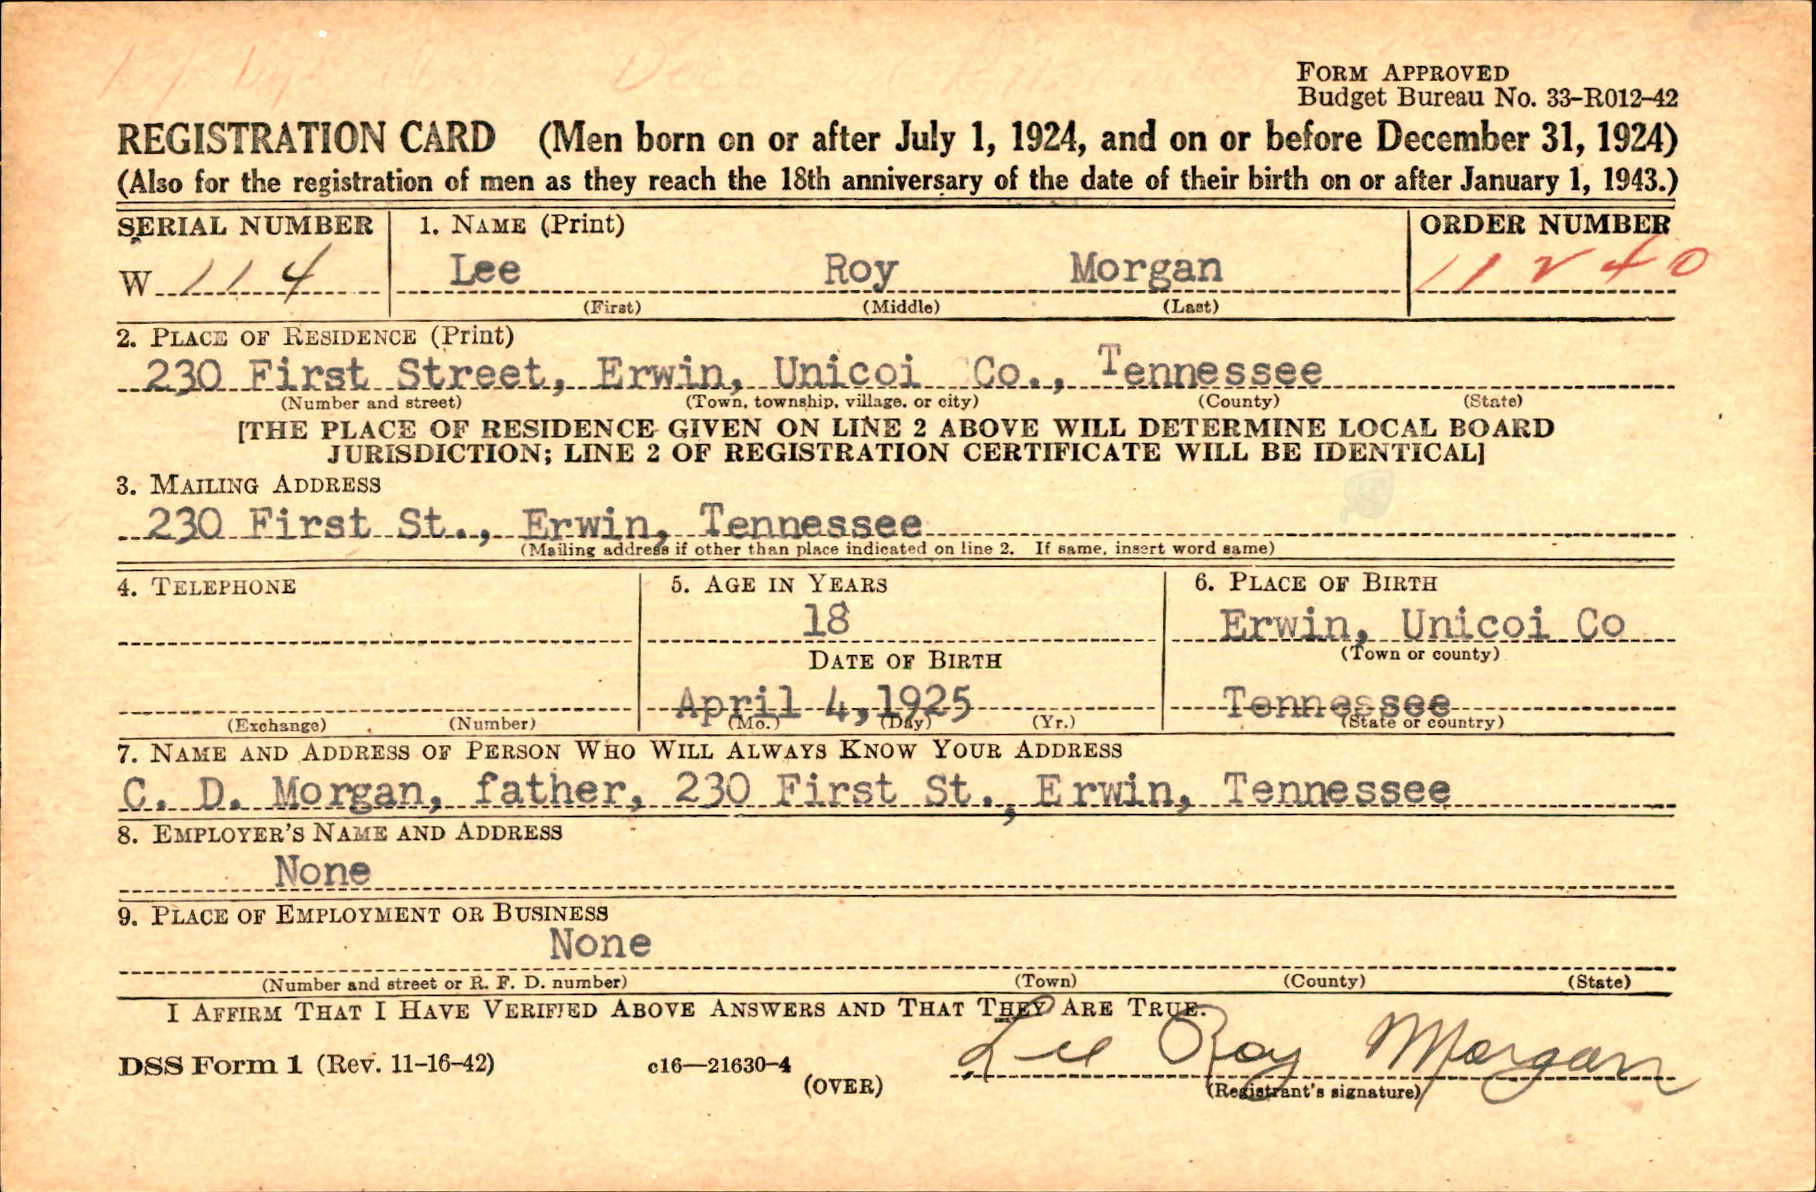 FORM APPROVED
Budget Bureau No. 33-R012-42
REGISTRATION CARD (Men born on or after July 1, 1924, and on or before December 31, 1924)
(Also for the registration of men as they reach the 18th anniversary of the date of their birth on or after January 1, 1943.)
SERIAL NUMBER 1. NAME (Print) ORDER NUMBER
W 114 Lee Roy Morgan 11240
(First) (Middle) (Last)
2. PLACE OF RESIDENCE (Print)
230 First Street, Erwin, Unicoi Co., Tennessee
(Number and street) (Town, township, village, or city) (County) (State)
[THE PLACE OF RESIDENCE GIVEN ON LINE 2 ABOVE WILL DETERMINE LOCAL BOARD
JURISDICTION; LINE 2 OF REGISTRATION CERTIFICATE WILL BE IDENTICAL]
3. MAILING ADDRESS
230 First St., Erwin, Tennessee
(Mailing address if other than place indicated on line 2. If same, insert word same)
4. TELEPHONE 5. AGE IN YEARS 6. PLACE OF BIRTH
18 Erwin, Unicoi Co
DATE OF BIRTH (Town or county)
April 4, 1925 Tennessee
(Exchange) (Number) (Mo.) (Day) (Yr.) (State or country)
7. NAME AND ADDRESS OF PERSON WHO WILL ALWAYS KNOW YOUR ADDRESS
C. D. Morgan, father, 230 First St., Erwin, Tennessee
8. EMPLOYER'S NAME AND ADDRESS
None
9. PLACE OF EMPLOYMENT OR BUSINESS
None
(Number and street or R. F. D. number) (Town) (County) (State)
I AFFIRM THAT I HAVE VERIFIED ABOVE ANSWERS AND THAT THEY ARE TRUE.
DSS Form 1 (Rev. 11-16-42) c16—21630-4 Lee Roy Morgan
(OVER) (Registrant's signature)